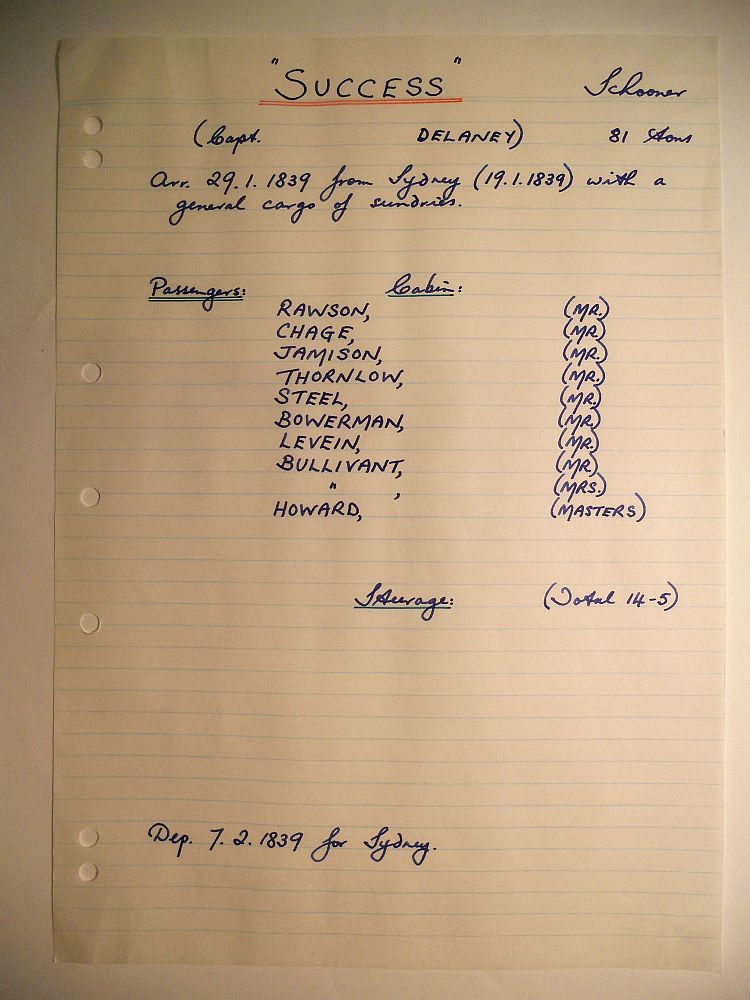 "SUCCESS" Schooner
(Capt. DELANEY) 81 tons
Arr. 29.1.1839 from Sydney (19.1.1839) with a
general cargo of sundries.
Passengers: Cabin:
RAWSON, (MR.)
CHAGE, (MR.)
JAMISON, (MR.)
THORNLOW, (MR.)
STEEL, (MR.)
BOWERMAN, (MR.)
LEVEIN, (MR.)
BULLIVANT, (MR.)
" , (MRS.)
HOWARD, (MASTERS)
Steerage: (Total 14-5)
Dep. 7.2.1839 for Sydney.